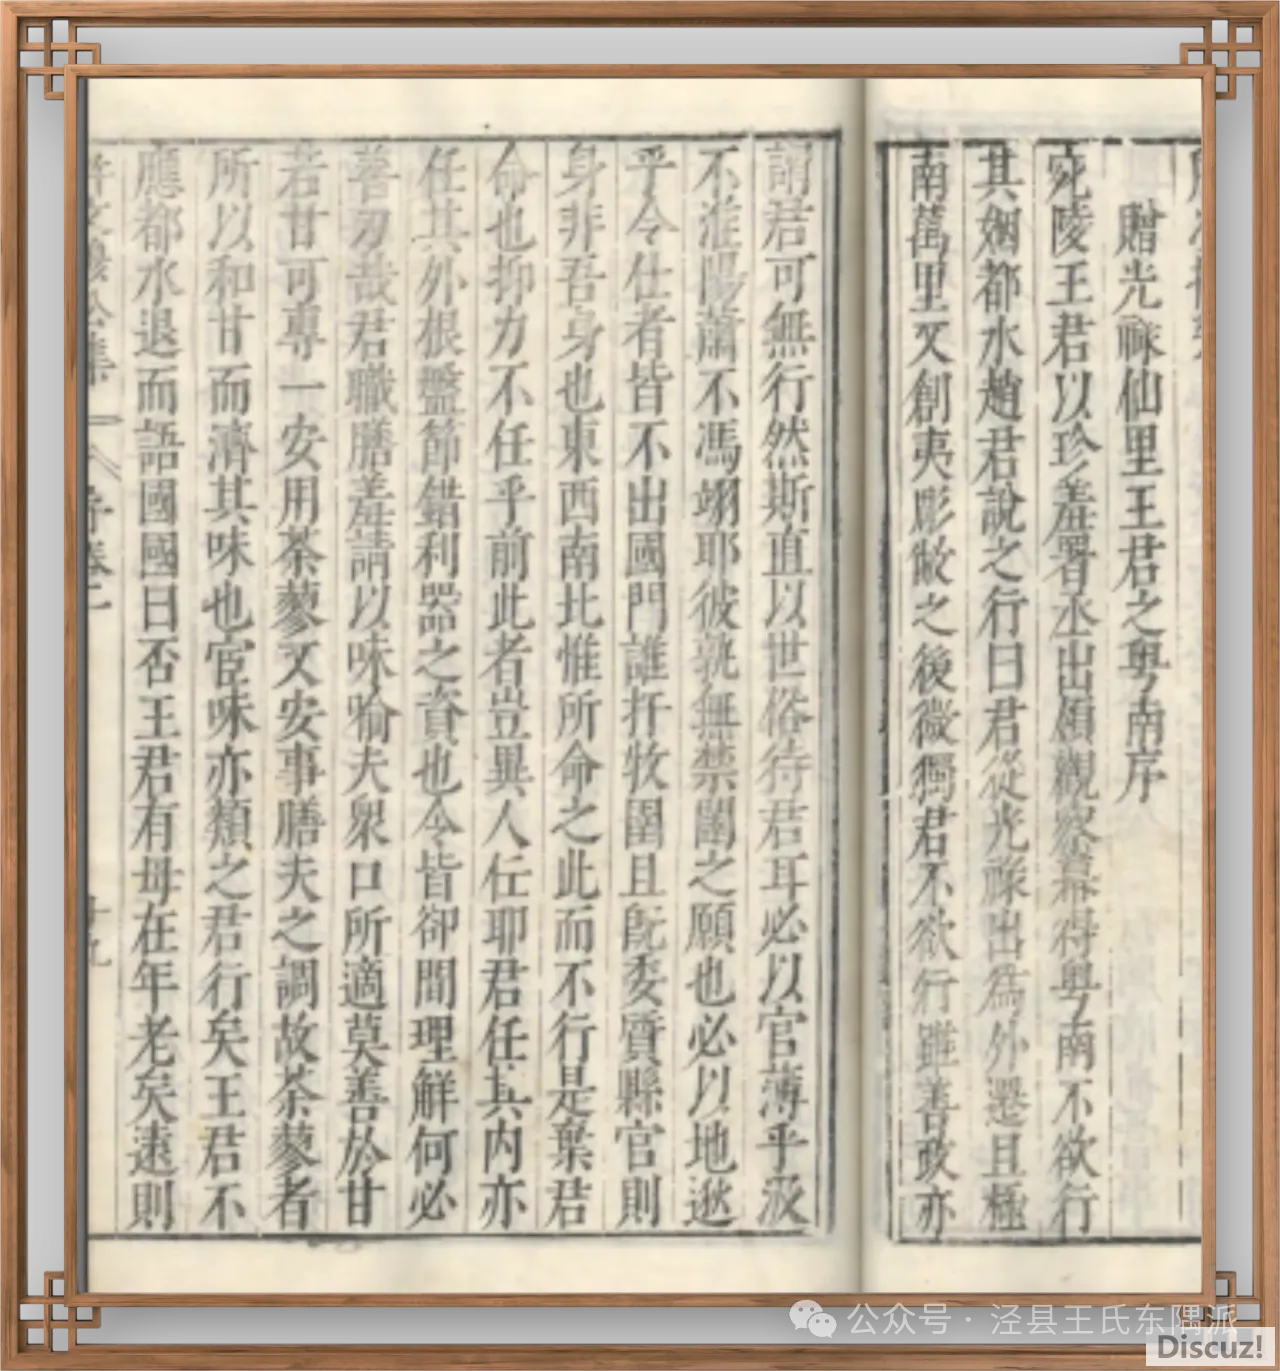 贈光祿仙里王君之粵南序
宛陵王君以珍羞署丞出領觀察幕得粵南不欲行
其姻都水趙君說之行曰君從光祿出為外遷且極
南萬里又創夷彫敝之後微獨君不欲行雖善政亦
謂君可無行然斯直以世俗待君耳必以官薄乎汲
不淮陽蕭不馮翊耶彼孰無禁闥之願也必以地遯
乎今仕者皆不出國門誰扞牧圉且旣委質縣官則
身非吾身也東西南北惟所命之此而不行是棄君
命也抑力不任乎前此者豈異人任耶君任其內亦
任其外根盤節錯利器之資也今皆卻間理解何必
善刃哉君職膳羞請以味喻夫衆口所適莫善於甘
若甘可專一安用荼蓼又安事膳夫之調故荼蓼者
所以和甘而濟其味也宦味亦類之君行矣王君不
應都水退而語國國曰否王君有母在年老矣遠則
許文穆公集
卷二
十九
公众号·泾县王氏东隅派
Discuz!